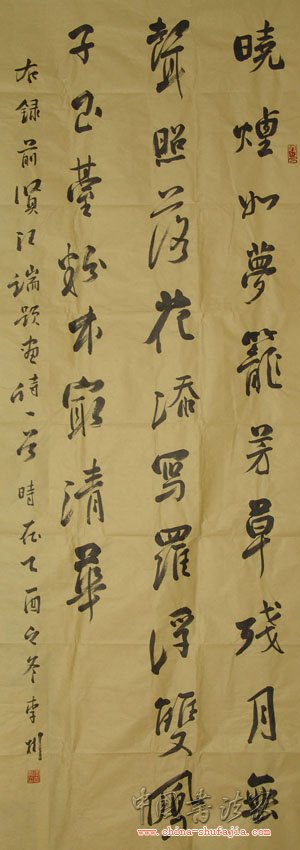 曉煙如夢籠芳草殘月無
聲照落花添寫羅浮雙鳳
子玉臺粉本最清華
右錄前賢汪端題畫詩一首 時在乙酉之冬 李
www.china-shufajia.com